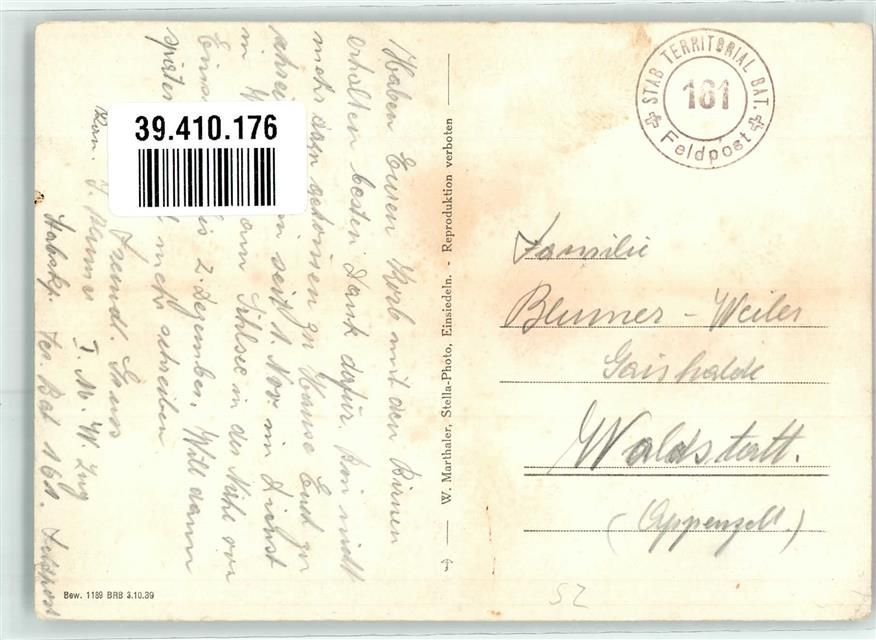 Haben Euren Korb mit den Birnen
erhalten besten Dank dafür. Bin nicht
mehr dazu gekommen zu Hause Euch zu
seit 1. Nov. im Dienst
in am Sihlsee in der Nähe von
Eins is 2. Dezember. Will dann
später mehr schreiben
Freundl. Gruss
Kan. J.
T. M. W. Zug
Ter. Bat 161. Feldpost
39.410.176
W. Marthaler, Stella-Photo, Einsiedeln. - Reproduktion verboten
Bew. 1189 BRB 3.10.39
STAB TERRITORIAL BAT.
161
Feldpost
Familie
Blumer - Weiler
Gaishalde
Waldstatt.
(Appenzell.)
SZ